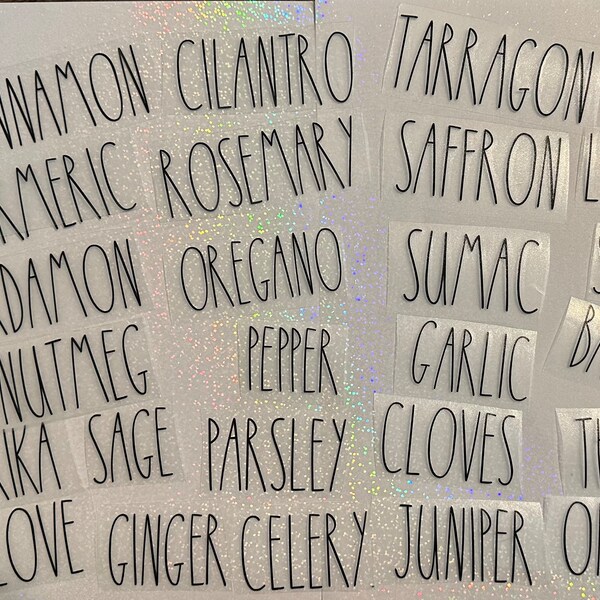 NNAMON CILANTRO TARRAGON
MERIC ROSEMARY SAFFRON L
DAMON OREGANO SUMAC
NUTMEG PEPPER GARLIC BA
IKA SAGE PARSLEY CLOVES
LOVE GINGER CELERY JUNIPER